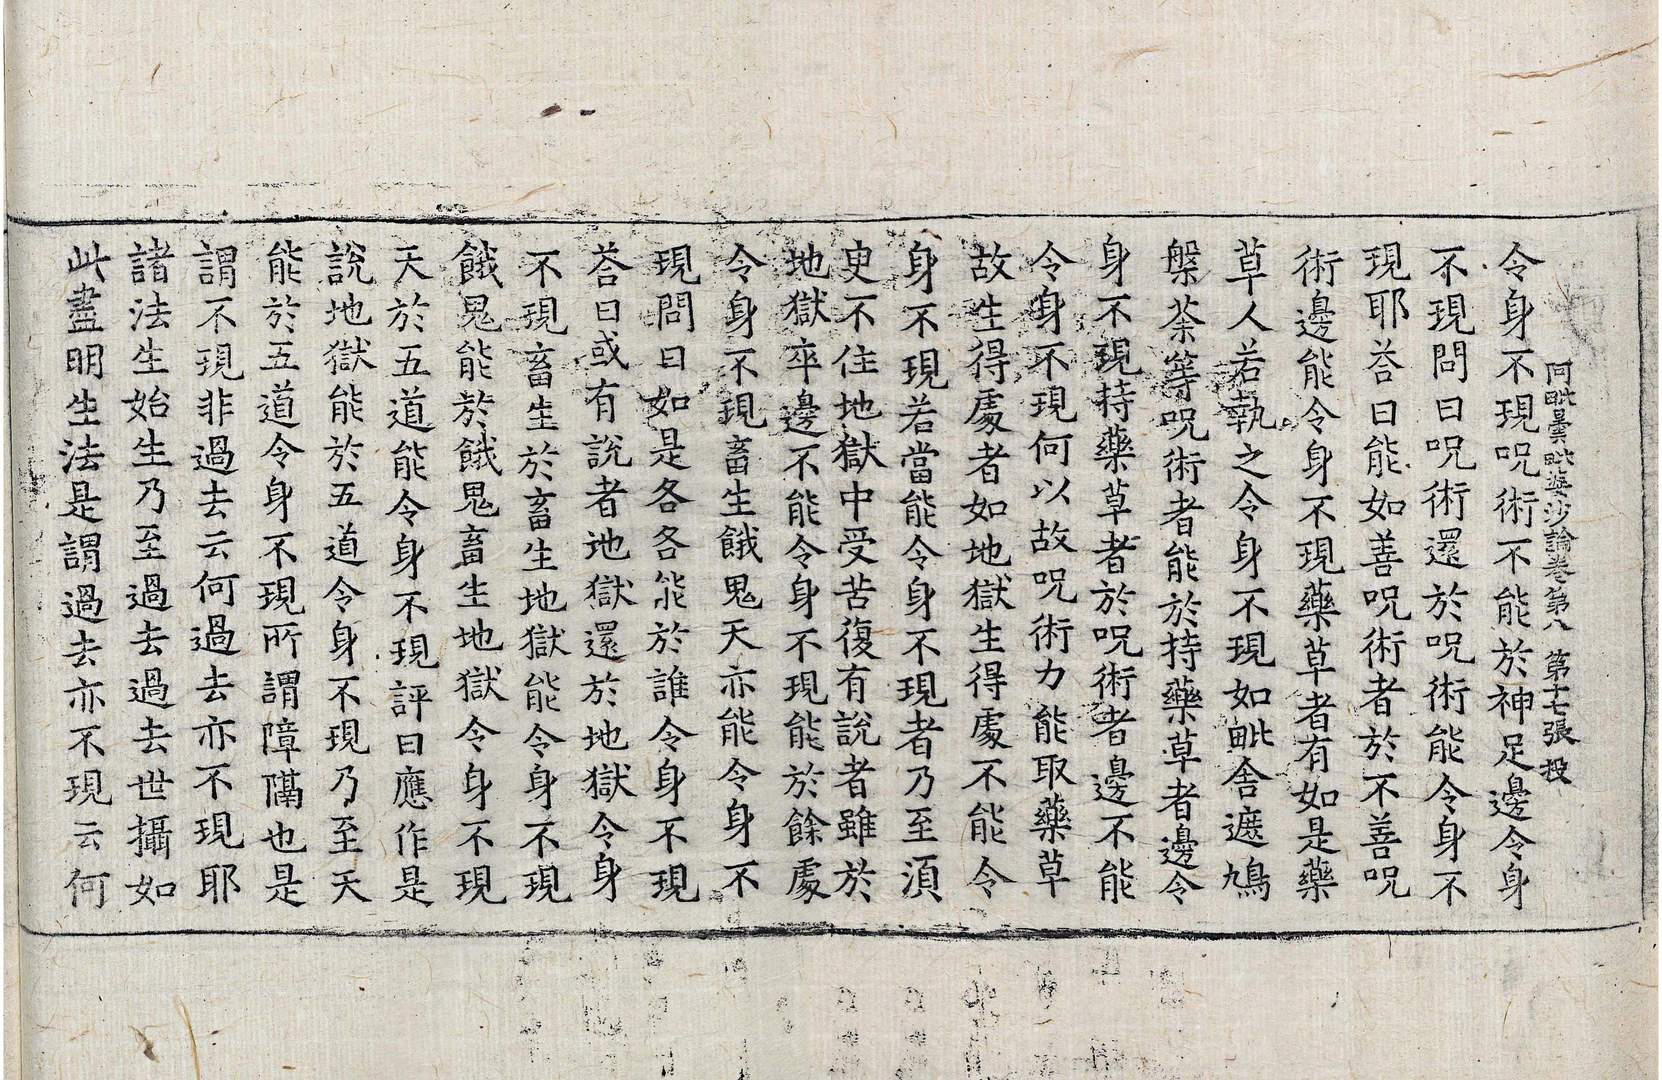 阿毗曇毗婆沙論卷第八 第十七張 投
令身不現呪術不能於神足邊令身
不現問曰呪術還於呪術能令身不
現耶荅曰能如善呪術者於不善呪
術邊能令身不現藥草者有如是藥
草人若執之令身不現如毗舍遮鳩
槃荼等呪術者能於持藥草者邊令
身不現持藥草者於呪術者邊不能
令身不現何以故呪術力能取藥草
故生得處者如地獄生得處不能令
身不現若當能令身不現者乃至須
臾不住地獄中受苦復有說者雖於
地獄卒邊不能令身不現能於餘處
令身不現畜生餓鬼天亦能令身不
現問曰如是各各能於誰令身不現
荅曰或有說者地獄還於地獄令身
不現畜生於畜生地獄能令身不現
餓鬼能於餓鬼畜生地獄令身不現
天於五道能令身不現評曰應作是
說地獄能於五道令身不現乃至天
能於五道令身不現所謂障隔也是
謂不現非過去云何過去亦不現耶
諸法生始生乃至過去過去世攝如
此盡明生法是謂過去亦不現云何